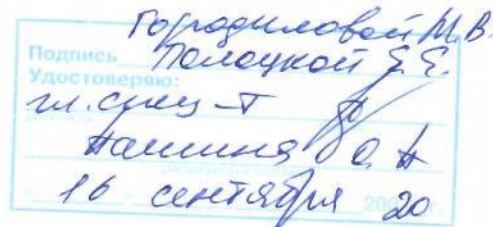 Городиловой М.В.
Подпись Полоцкой Е.Е.
Удостоверяю:
гл. спец-т
О.А.
16 сентября 200 20 г.